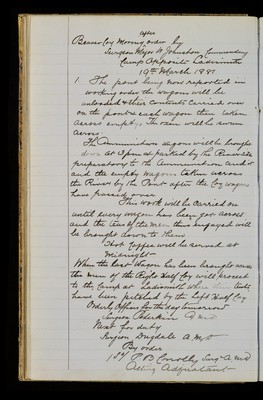 after
Bearer Coy Morning order by
Surgeon Major H Johnston Commanding
Camp Opposite Ladismith
19th March 1881
1. The pont being now reported in
working order the wagons will be
unloaded & their contents carried over
on the pont & each wagon then taken
across empty, the oxen will be swum
across.
The Ammunition wagons will be brought
down at 9 pm & parked by the Riverside
preparatory to the Ammunition
and the empty wagons taken across
the River by the Pont after the Coy wagons
have passed over
This work will be carried on
until every wagon has been got across
and the tea of the men thus engaged will
be brought down to them
Hot Coffee will be served at
Midnight
When the last Wagon has been brought across
the men of the Right Half Coy will proceed
to the Camp at Ladismith where tents
have been pitched by the Left Half Coy
Orderly Officer for the day tomorrow
Surgeon A M D
Next for duty
Surgeon Dugdale A M D
By order
P B Connolly Surg A M D
Acting Adjutant